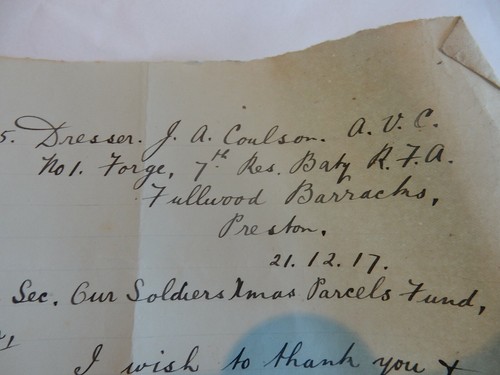 5. Dresser. J. A. Coulson. A. V. C.
No 1. Forge, 7th Res. Baty R. F. A.
Fullwood Barracks,
Preston,
21. 12. 17.
Sec. Our Soldiers Xmas Parcels Fund,
I wish to thank you &